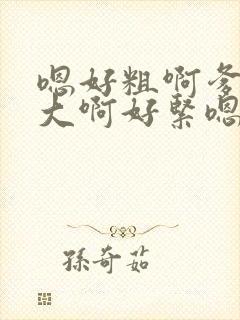 嗯好粗啊爹
大啊好緊嗯
孫奇茹